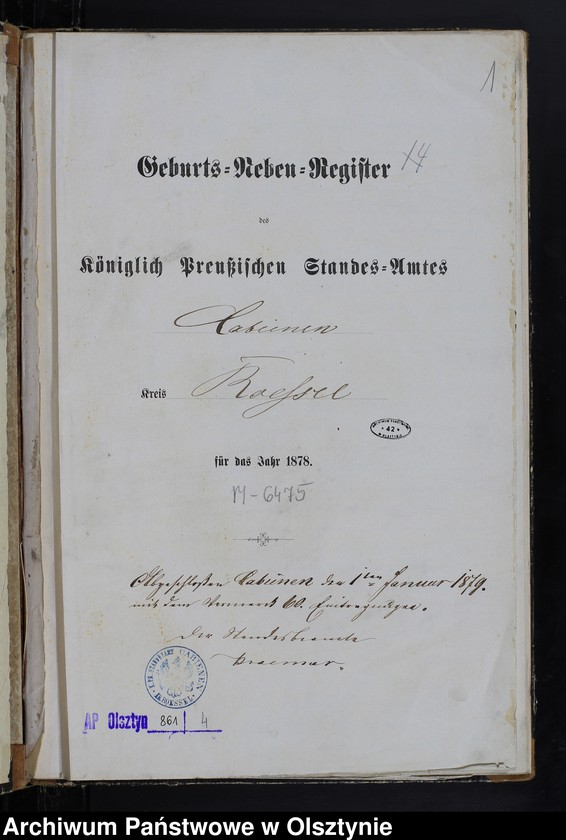 1
Geburts-Neben-Register
14
des
Königlich Preußischen Standes-Amtes
Cabienen
Kreis Roessel
42
für das Jahr 1878.
M-6475
Abgeschlossen Cabienen den 1ten Januar 1879.
mit dem Vermerk 60. Eintragungen.
Der Standesbeamte
AP Olsztyn 861 4
Archiwum Państwowe w Olsztynie